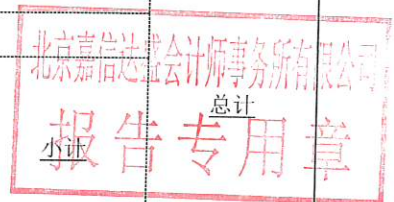 北京嘉信达盛会计师事务所有限公司
总计
报告专用章
小计